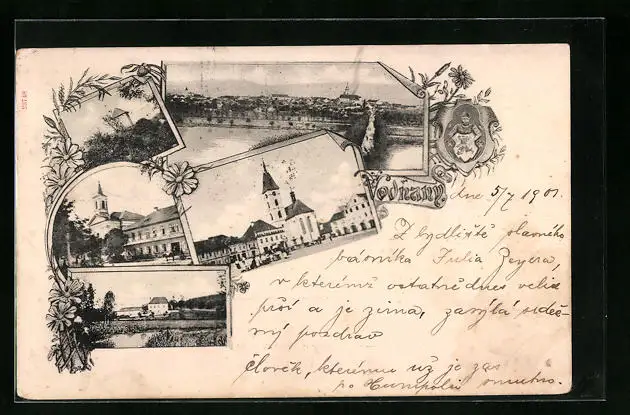 Vodňany dne 5/7 1901
Z bydliště slavného
básníka Julia Zeyera,
v kterémž ostatně dnes velice
prší a je zima, zasílá srdeč-
ný pozdrav
člověk, kterému už je zas
po Humpolci smutno.